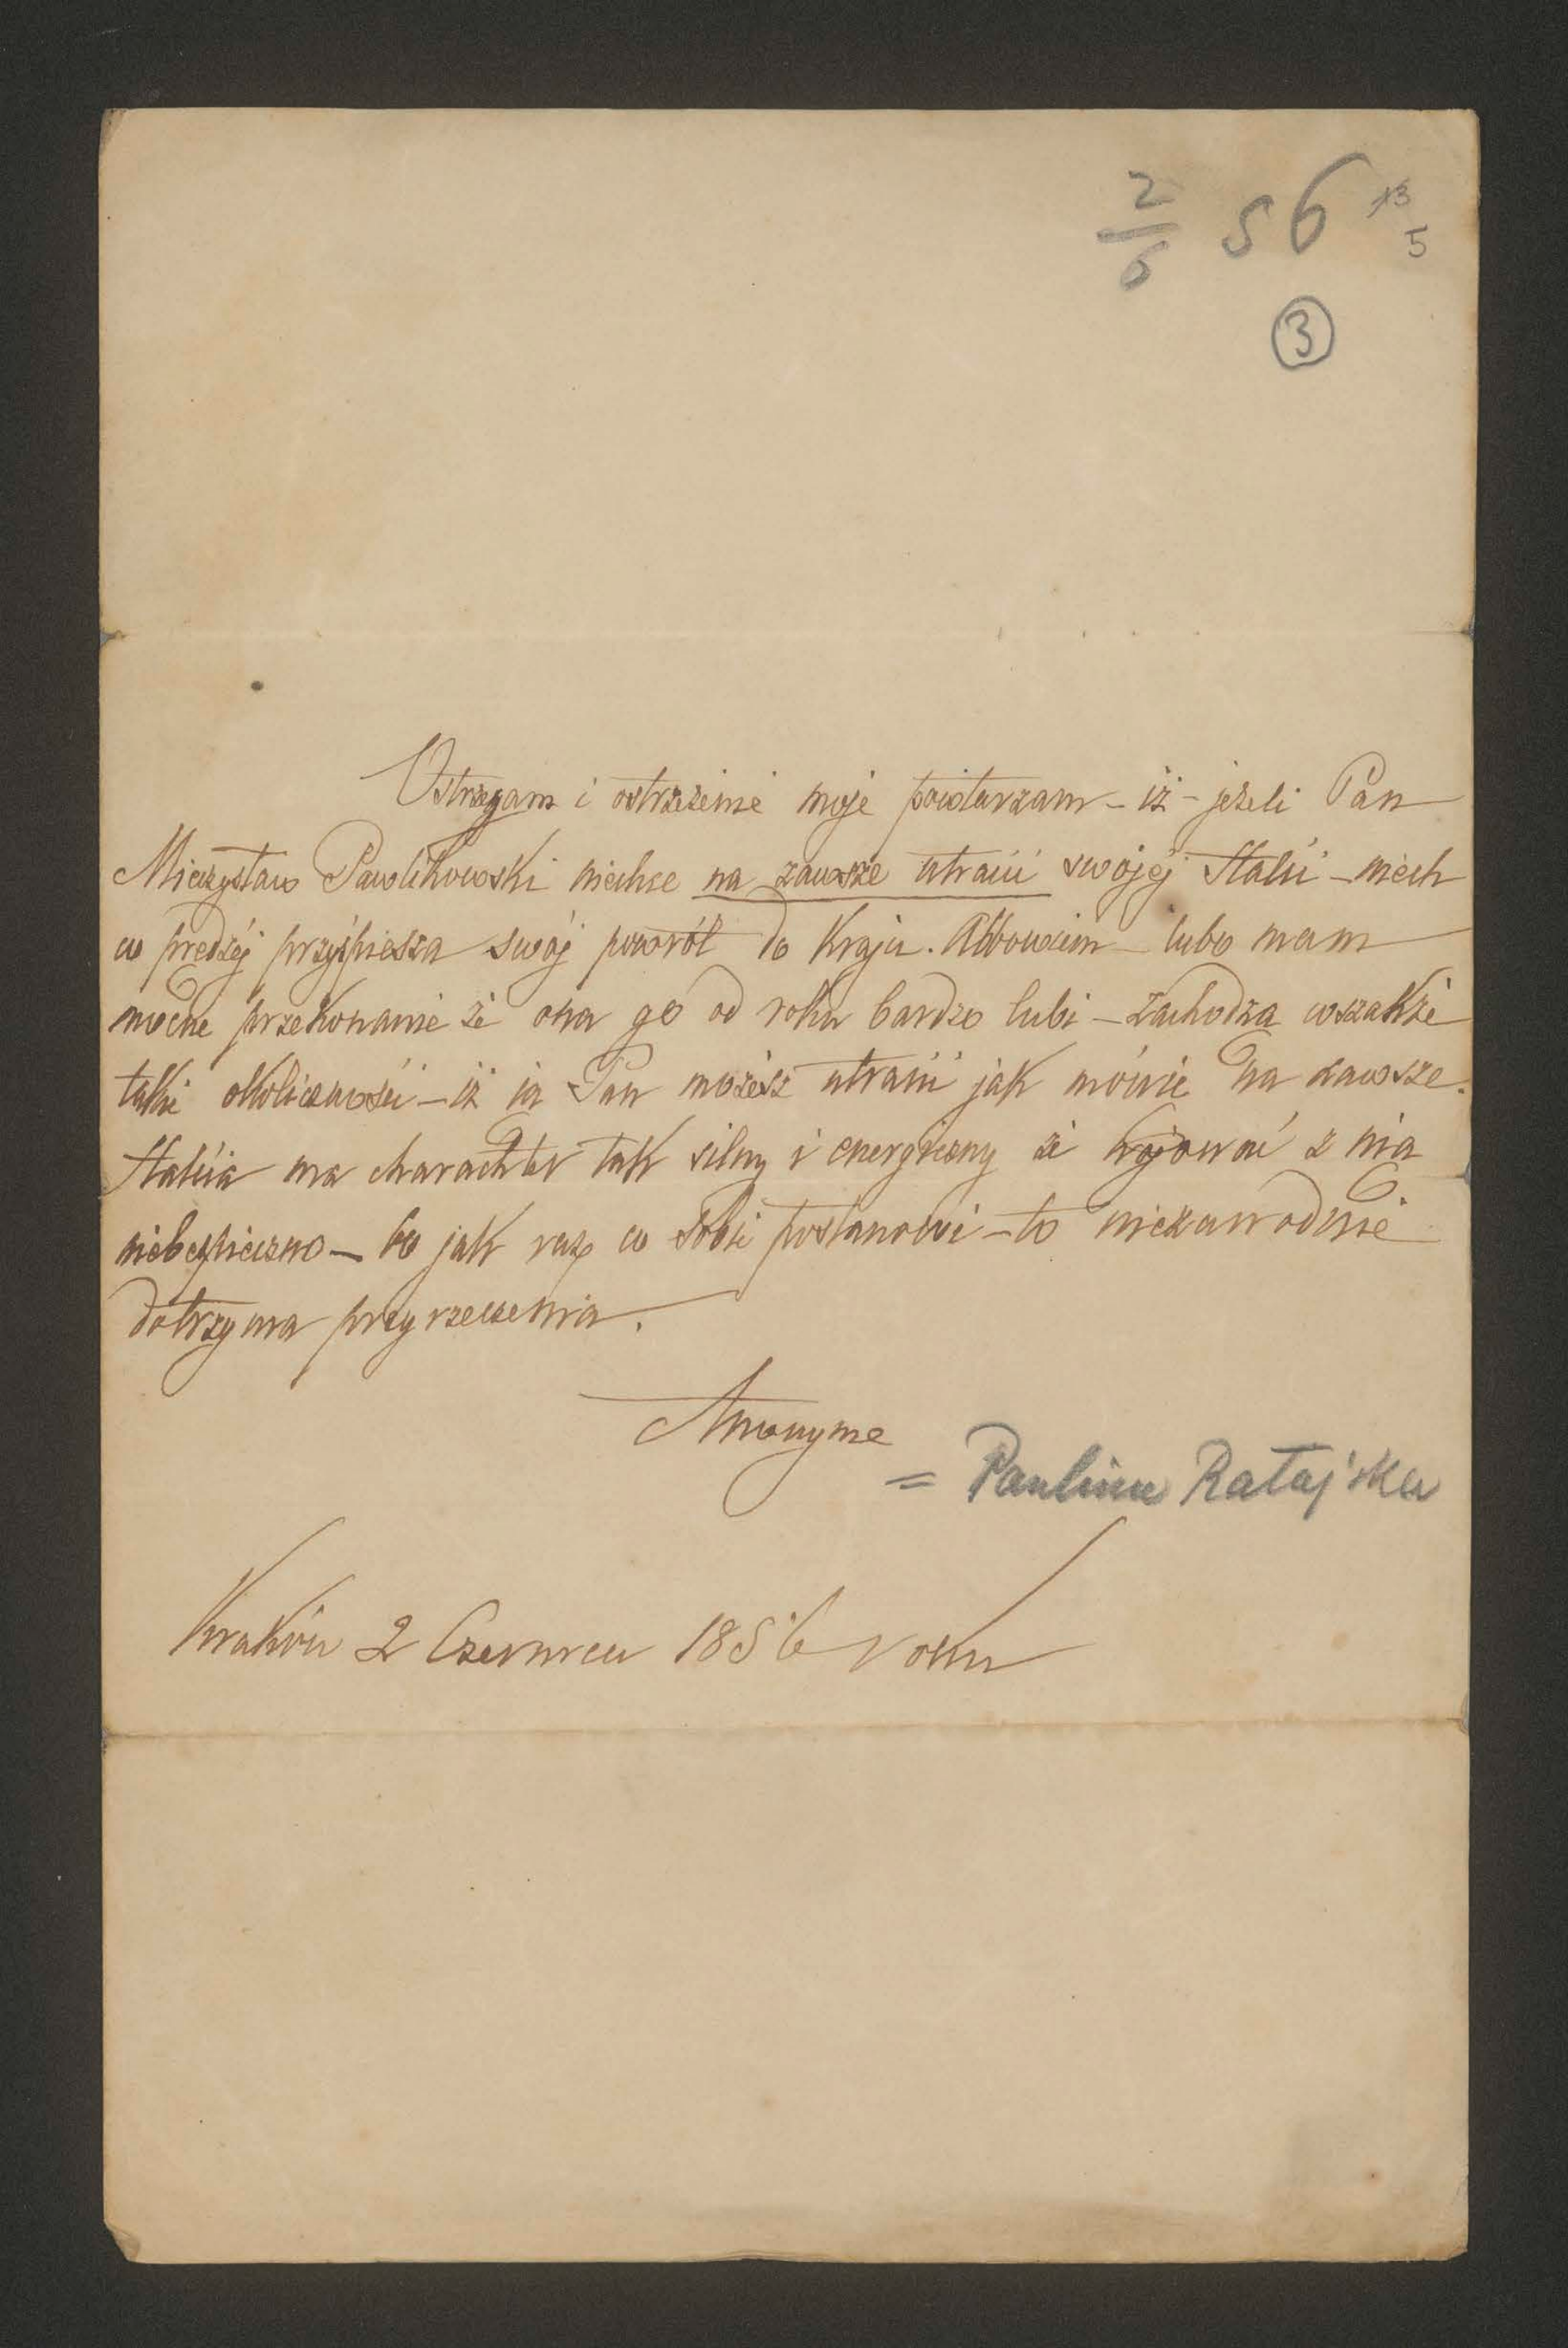 2/6 56 13
5
3
Ostrzegam i ostrzeżenie moje powtarzam – iż – jeżeli Pan
Mieczysław Pawlikowski niechce na zawsze utracić swojéj Stasi – niech
co prędzéj przyśpiesza swój powrót do Kraju. Albowiem – lubo mam
mocne przekonanie że ona go od roku bardzo lubi – zachodzą wszakże
takie okoliczności – iż ią Pan możesz utracić jak mówię na zawsze.
ma charackter tak silny i energiczny że z nią
niebezpieczno – bo jak raz co sobie postanowi – to niezawodnie
dotrzyma przyrzeczenia.
Anonyme
= Paulina Ratajska
Kraków 2 Czerwca 1856 roku